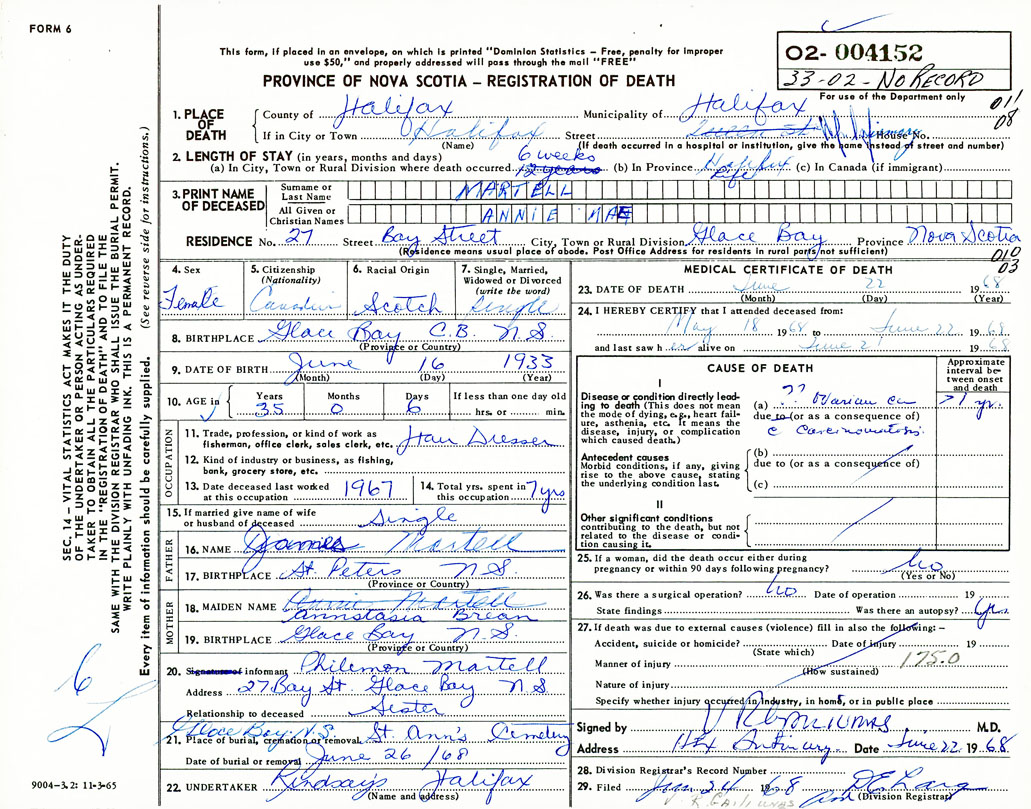 FORM 6
This form, if placed in an envelope, on which is printed "Dominion Statistics – Free, penalty for improper
use $50," and properly addressed will pass through the mail "FREE"
PROVINCE OF NOVA SCOTIA – REGISTRATION OF DEATH
02- 004152
33-02- NO RECORD
For use of the Department only
011
08
1. PLACE OF DEATH
County of Halifax Municipality of Halifax
If in City or Town Halifax Street House No.
(Name) (If death occurred in a hospital or institution, give the name instead of street and number)
2. LENGTH OF STAY (in years, months and days) 6 weeks
(a) In City, Town or Rural Division where death occurred 12 years (b) In Province Halifax Life (c) In Canada (if immigrant)
3. PRINT NAME OF DECEASED
Surname or Last Name MARTELL
All Given or Christian Names ANNIE MAE
RESIDENCE No. 27 Street Bay Street City, Town or Rural Division Glace Bay Province Nova Scotia
(Residence means usual place of abode. Post Office Address for residents in rural parts not sufficient)
010
03
4. Sex Female
5. Citizenship (Nationality) Canadian
6. Racial Origin Scotch
7. Single, Married, Widowed or Divorced (write the word) Single
8. BIRTHPLACE Glace Bay C.B. N.S.
(Province or Country)
9. DATE OF BIRTH June 16 1933
(Month) (Day) (Year)
10. AGE in Years 35 Months 0 Days 6 If less than one day old hrs. or min.
OCCUPATION
11. Trade, profession, or kind of work as fisherman, office clerk, sales clerk, etc. Hair Dresser
12. Kind of industry or business, as fishing, bank, grocery store, etc.
13. Date deceased last worked at this occupation 1967
14. Total yrs. spent in this occupation 7 yrs
15. If married give name of wife or husband of deceased Single
FATHER
16. NAME James Martell
17. BIRTHPLACE St. Peters N.S.
(Province or Country)
MOTHER
18. MAIDEN NAME Annie Martell
Annstasia Brean
19. BIRTHPLACE Glace Bay N.S.
(Province or Country)
20. Signature of informant Philemon Martell
Address 27 Bay St. Glace Bay N.S.
Relationship to deceased Sister
Glace Bay N.S.
21. Place of burial, cremation or removal St. Ann's Cemetery
Date of burial or removal June 26/68
22. UNDERTAKER Lindsay's Halifax
(Name and address)
MEDICAL CERTIFICATE OF DEATH
23. DATE OF DEATH June 22 1968
(Month) (Day) (Year)
24. I HEREBY CERTIFY that I attended deceased from:
May 18 1968 to June 22 1968
and last saw her alive on June 21 1968
CAUSE OF DEATH
Approximate interval between onset and death
I
Disease or condition directly leading to death (This does not mean the mode of dying, e.g., heart failure, asthenia, etc. It means the disease, injury, or complication which caused death.)
(a) ?? Ovarian ca > 1 yr.
due to (or as a consequence of)
c Carcinomatosis.
Antecedent causes
Morbid conditions, if any, giving rise to the above cause, stating the underlying condition last.
(b)
due to (or as a consequence of)
(c)
II
Other significant conditions
contributing to the death, but not related to the disease or condition causing it.
25. If a woman, did the death occur either during pregnancy or within 90 days following pregnancy? No
(Yes or No)
26. Was there a surgical operation? No Date of operation 19
State findings Was there an autopsy? Yes
27. If death was due to external causes (violence) fill in also the following: –
Accident, suicide or homicide? Date of injury 19
(State which)
Manner of injury 175.0
(How sustained)
Nature of injury
Specify whether injury occurred in industry, in home, or in public place
Signed by M.D.
Address Date June 22 1968
28. Division Registrar's Record Number
29. Filed Jun 24 1968
(Division Registrar)
SEC. 14 – VITAL STATISTICS ACT MAKES IT THE DUTY
OF THE UNDERTAKER OR PERSON ACTING AS UNDER-
TAKER TO OBTAIN ALL THE PARTICULARS REQUIRED
IN THE "REGISTRATION OF DEATH" AND TO FILE THE
SAME WITH THE DIVISION REGISTRAR WHO SHALL ISSUE THE BURIAL PERMIT.
WRITE PLAINLY WITH UNFADING INK. THIS IS A PERMANENT RECORD.
Every item of information should be carefully supplied. (See reverse side for instructions.)
6
9004–3.2: 11-3-65